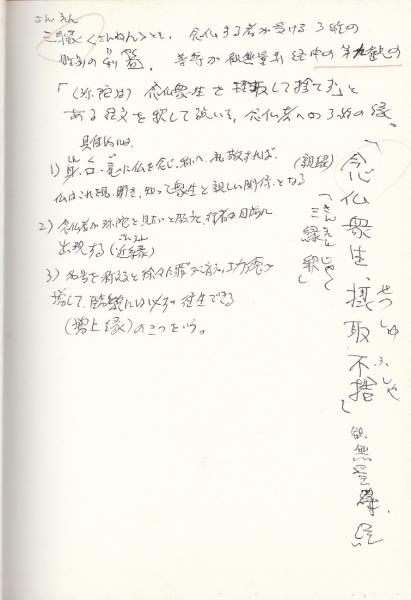 さんえん
三縁〈さんねん〉とも。念仏する者が受ける3種の
利益。善導が観無量寿経中の第九観の
「(弥陀は)念仏衆生を摂取して捨てず」と
ある経文を釈して説いた、念仏者への3種の縁。
具体的には、
1) 身・口・意に仏を念じ、称へ、礼敬すれば、(親縁)
仏はこれを見、聞き、知って衆生と親しい関係となる
2) 念仏者が弥陀を見たいと欲すと、行者の目前に
出現する(近縁)
3) 名号を称えると徐々に罪が消え、功徳が
増して、臨終には必ず往生できる
(増上縁)の三つをいう。
「念仏衆生、摂取不捨」
せっしゅふしゃ
「三縁釈」
さんえんしゃく
観無量寿経